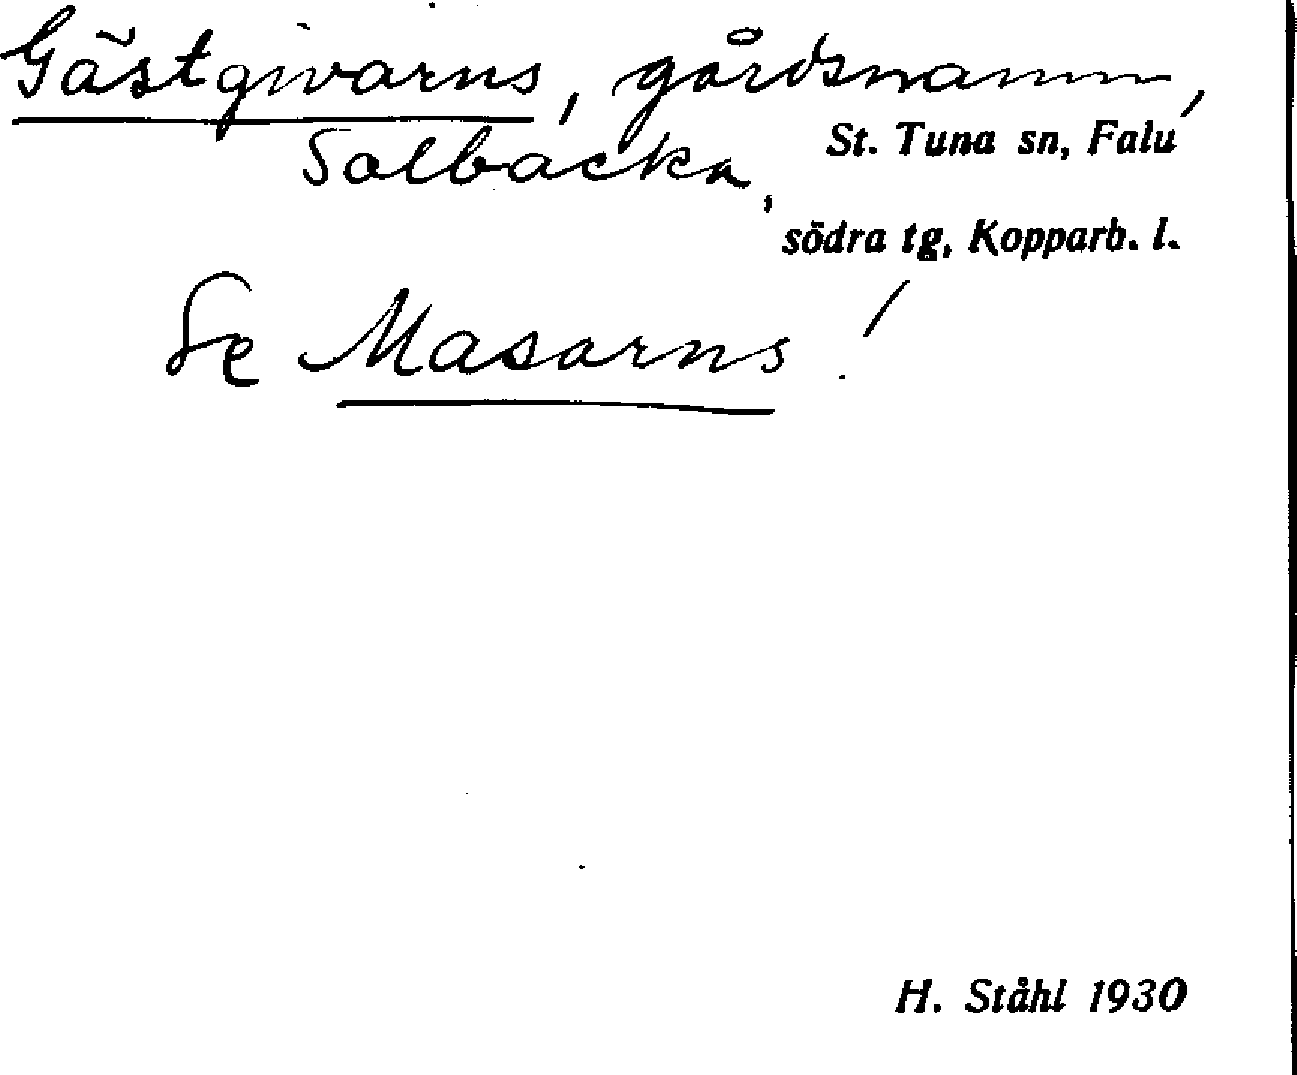 Gästgivarns, gårdsnamn,
Solbacka,
St. Tuna sn, Falu
södra tg, Kopparb. l.
Se Masarns!
H. Ståhl 1930